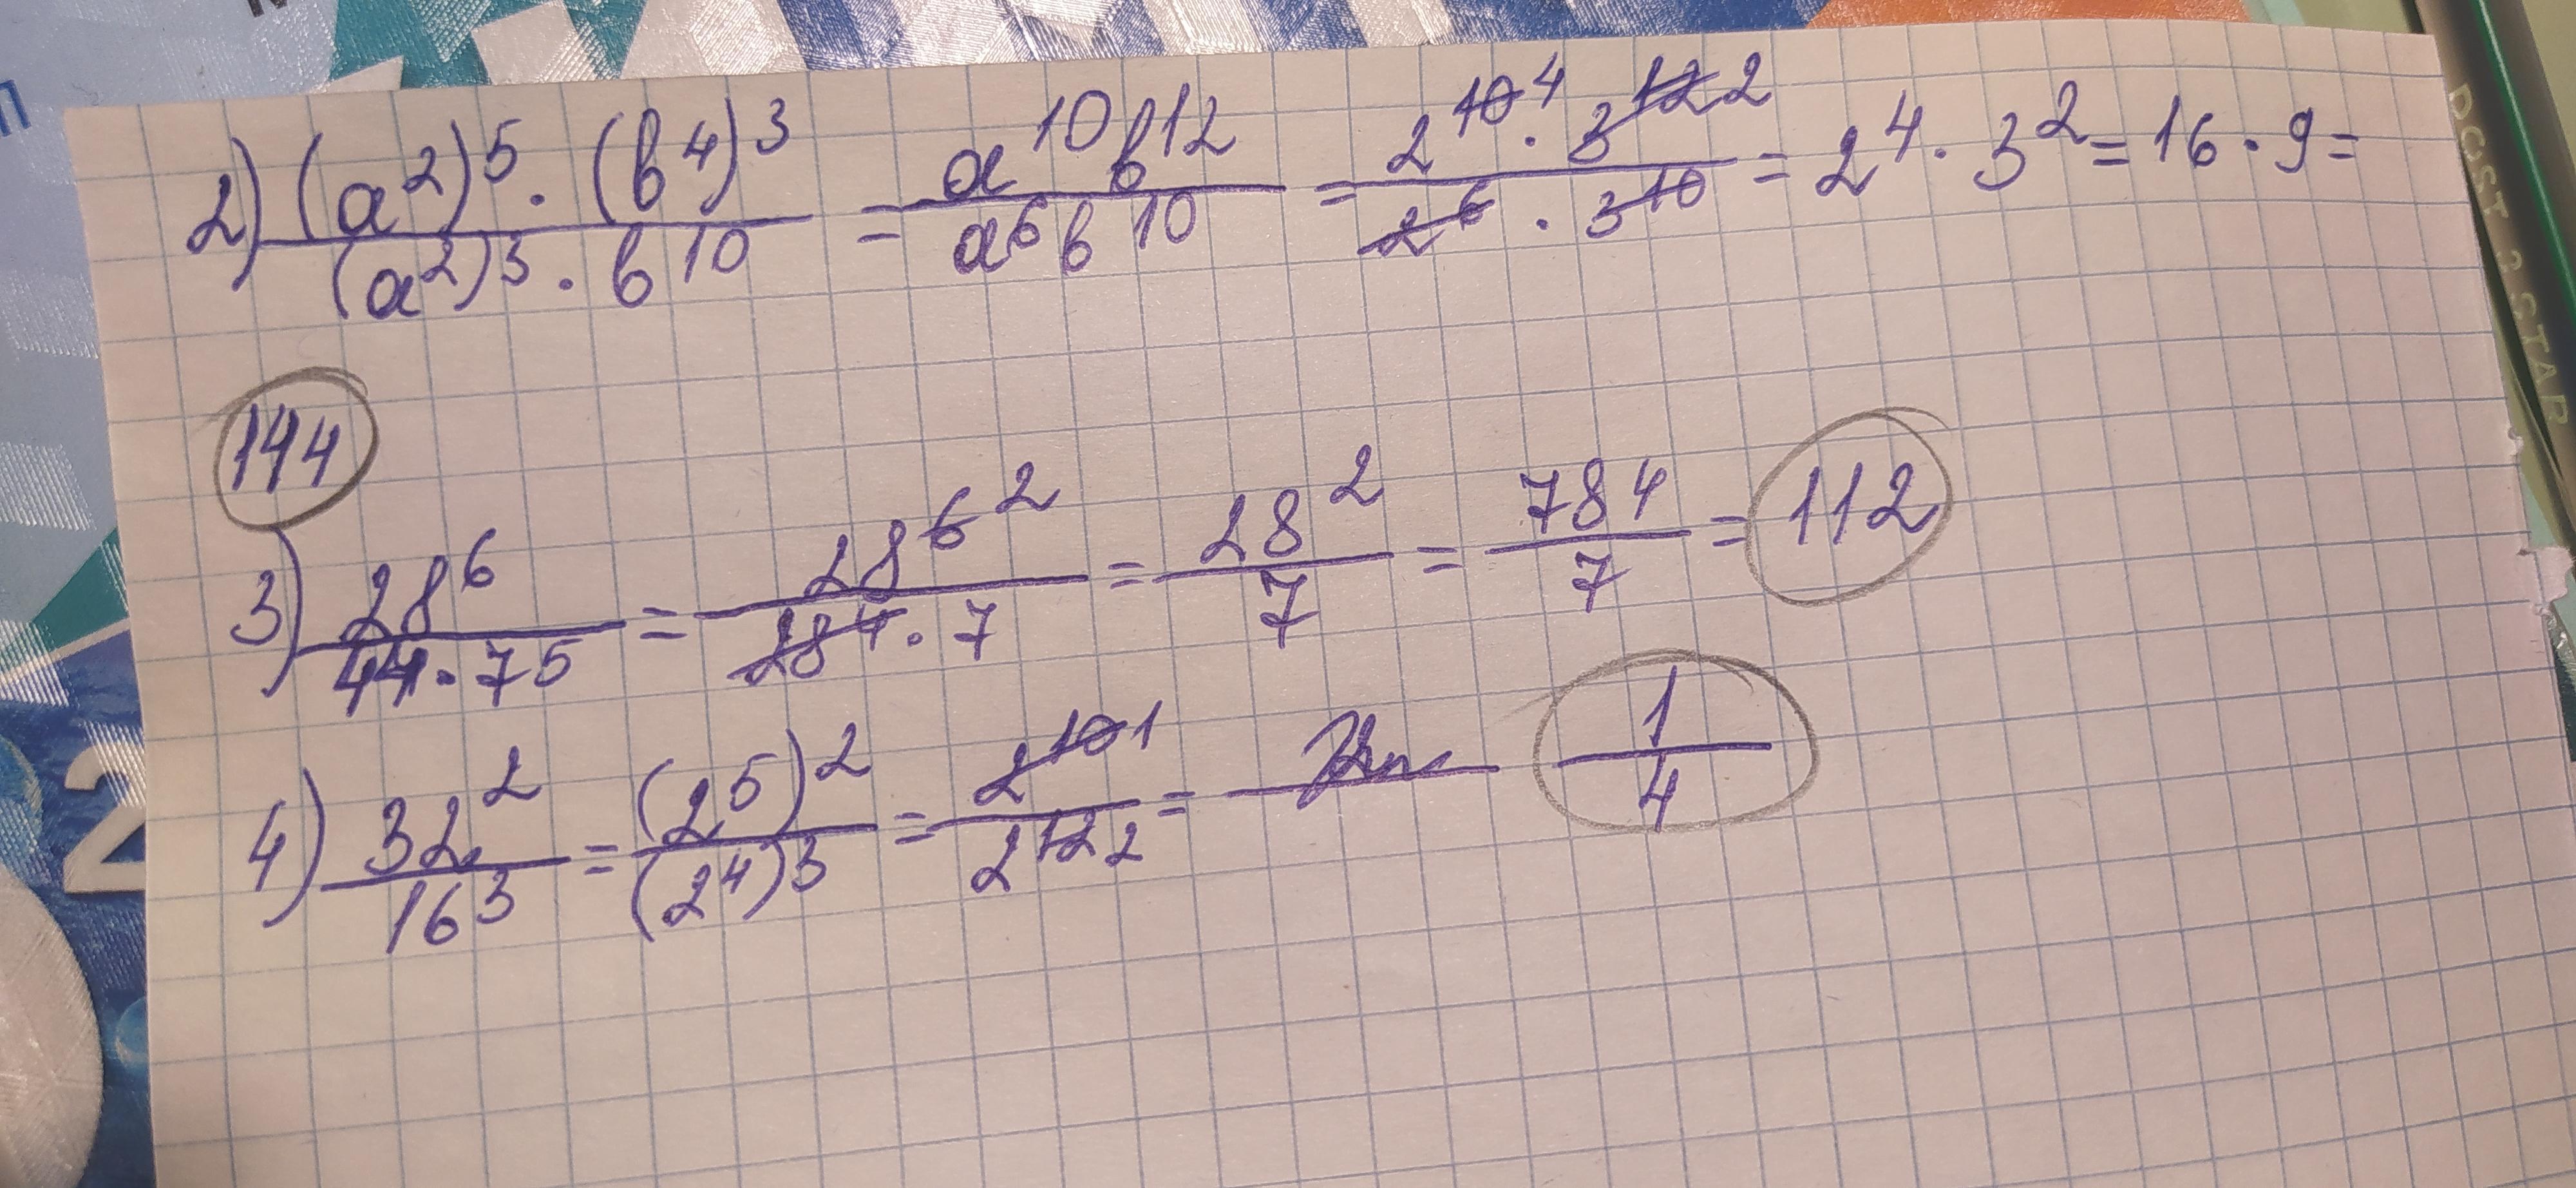 2) (a²)⁵ · (b⁴)³ / (a²)³ · b¹⁰ = a¹⁰b¹² / a⁶b¹⁰ = 2¹⁰ ⁴ · 3¹² ² / 2⁶ · 3¹⁰ = 2⁴ · 3² = 16 · 9 =
144
3) 28⁶ / 4⁴ · 7⁵ = 28⁶ ² / 28⁴ · 7 = 28² / 7 = 784 / 7 = 112
4) 32² / 16³ = (2⁵)² / (2⁴)³ = 2¹⁰ 1 / 2¹² 2 = 1 / 4
2